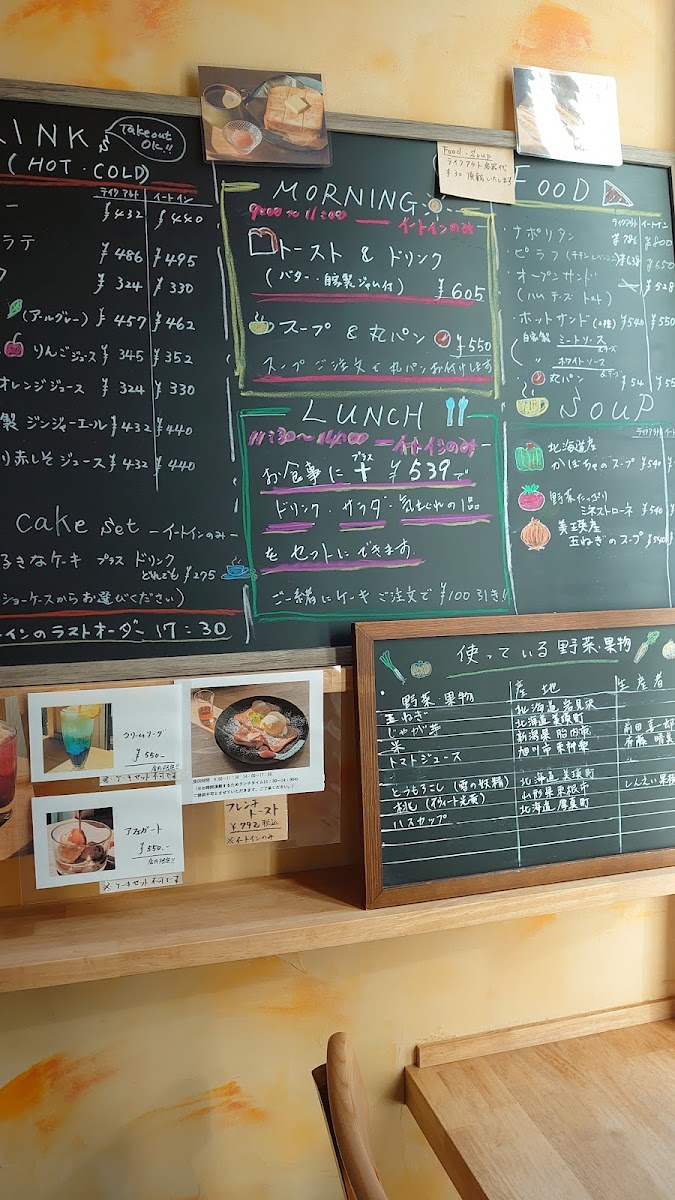 RINK
Takeout OK!!
(HOT・COLD)
テイクアウト イートイン
¥432 ¥440
ラテ ¥486 ¥495
¥324 ¥330
(アールグレー) ¥457 ¥462
りんごジュース ¥345 ¥352
オレンジジュース ¥324 ¥330
製 ジンジャーエール ¥432 ¥440
り赤しそジュース ¥432 ¥440
cake set ーイートインのみー
好きなケーキ プラス ドリンク
どれでも ¥275
ショーケースからお選びください)
インのラストオーダー 17:30
MORNING
9:00〜11:00 ー イートインのみー
トースト & ドリンク
(バター・自家製ジャム付) ¥605
スープ & 丸パン ¥550
スープご注文で丸パンお付けします
LUNCH
11:30〜14:00 ーイートインのみー
お食事に プラス + ¥539で
ドリンク・サラダ・気まぐれの1品
をセットにできます
ご一緒にケーキご注文で ¥100引き!!
Food・Soup
テイクアウト容器代
¥30 頂戴いたします
FOOD
テイクアウト イートイン
・ナポリタン ¥786 ¥800
・ピラフ ¥650
・オープンサンド ¥528
(ハム チーズ トマト)
・ホットサンド(2種) ¥540 ¥550
(自家製 ミートソース &チーズ
〃 ホワイトソース &チーズ
丸パン ¥54 ¥55
SOUP
テイクアウト イート
北海道産
かぼちゃのスープ ¥540
野菜たっぷり
ミネストローネ ¥540
美瑛産
玉ねぎのスープ ¥540
使っている野菜・果物
野菜・果物 産地 生産者
玉ねぎ 北海道 岩見沢
じゃが芋 北海道 美瑛町
米 新潟県 胎内市
トマトジュース 旭川市 東神楽
とうもろこし (雪の妖精) 北海道 美瑛町
山形県 東根市
ハスカップ 北海道 厚真町
クリームソーダ
¥550-
※ケーキセット不可です
アフォガート
¥550-
※ケーキセット不可です
フレンチ
トースト
¥792 税込
※イートインのみ